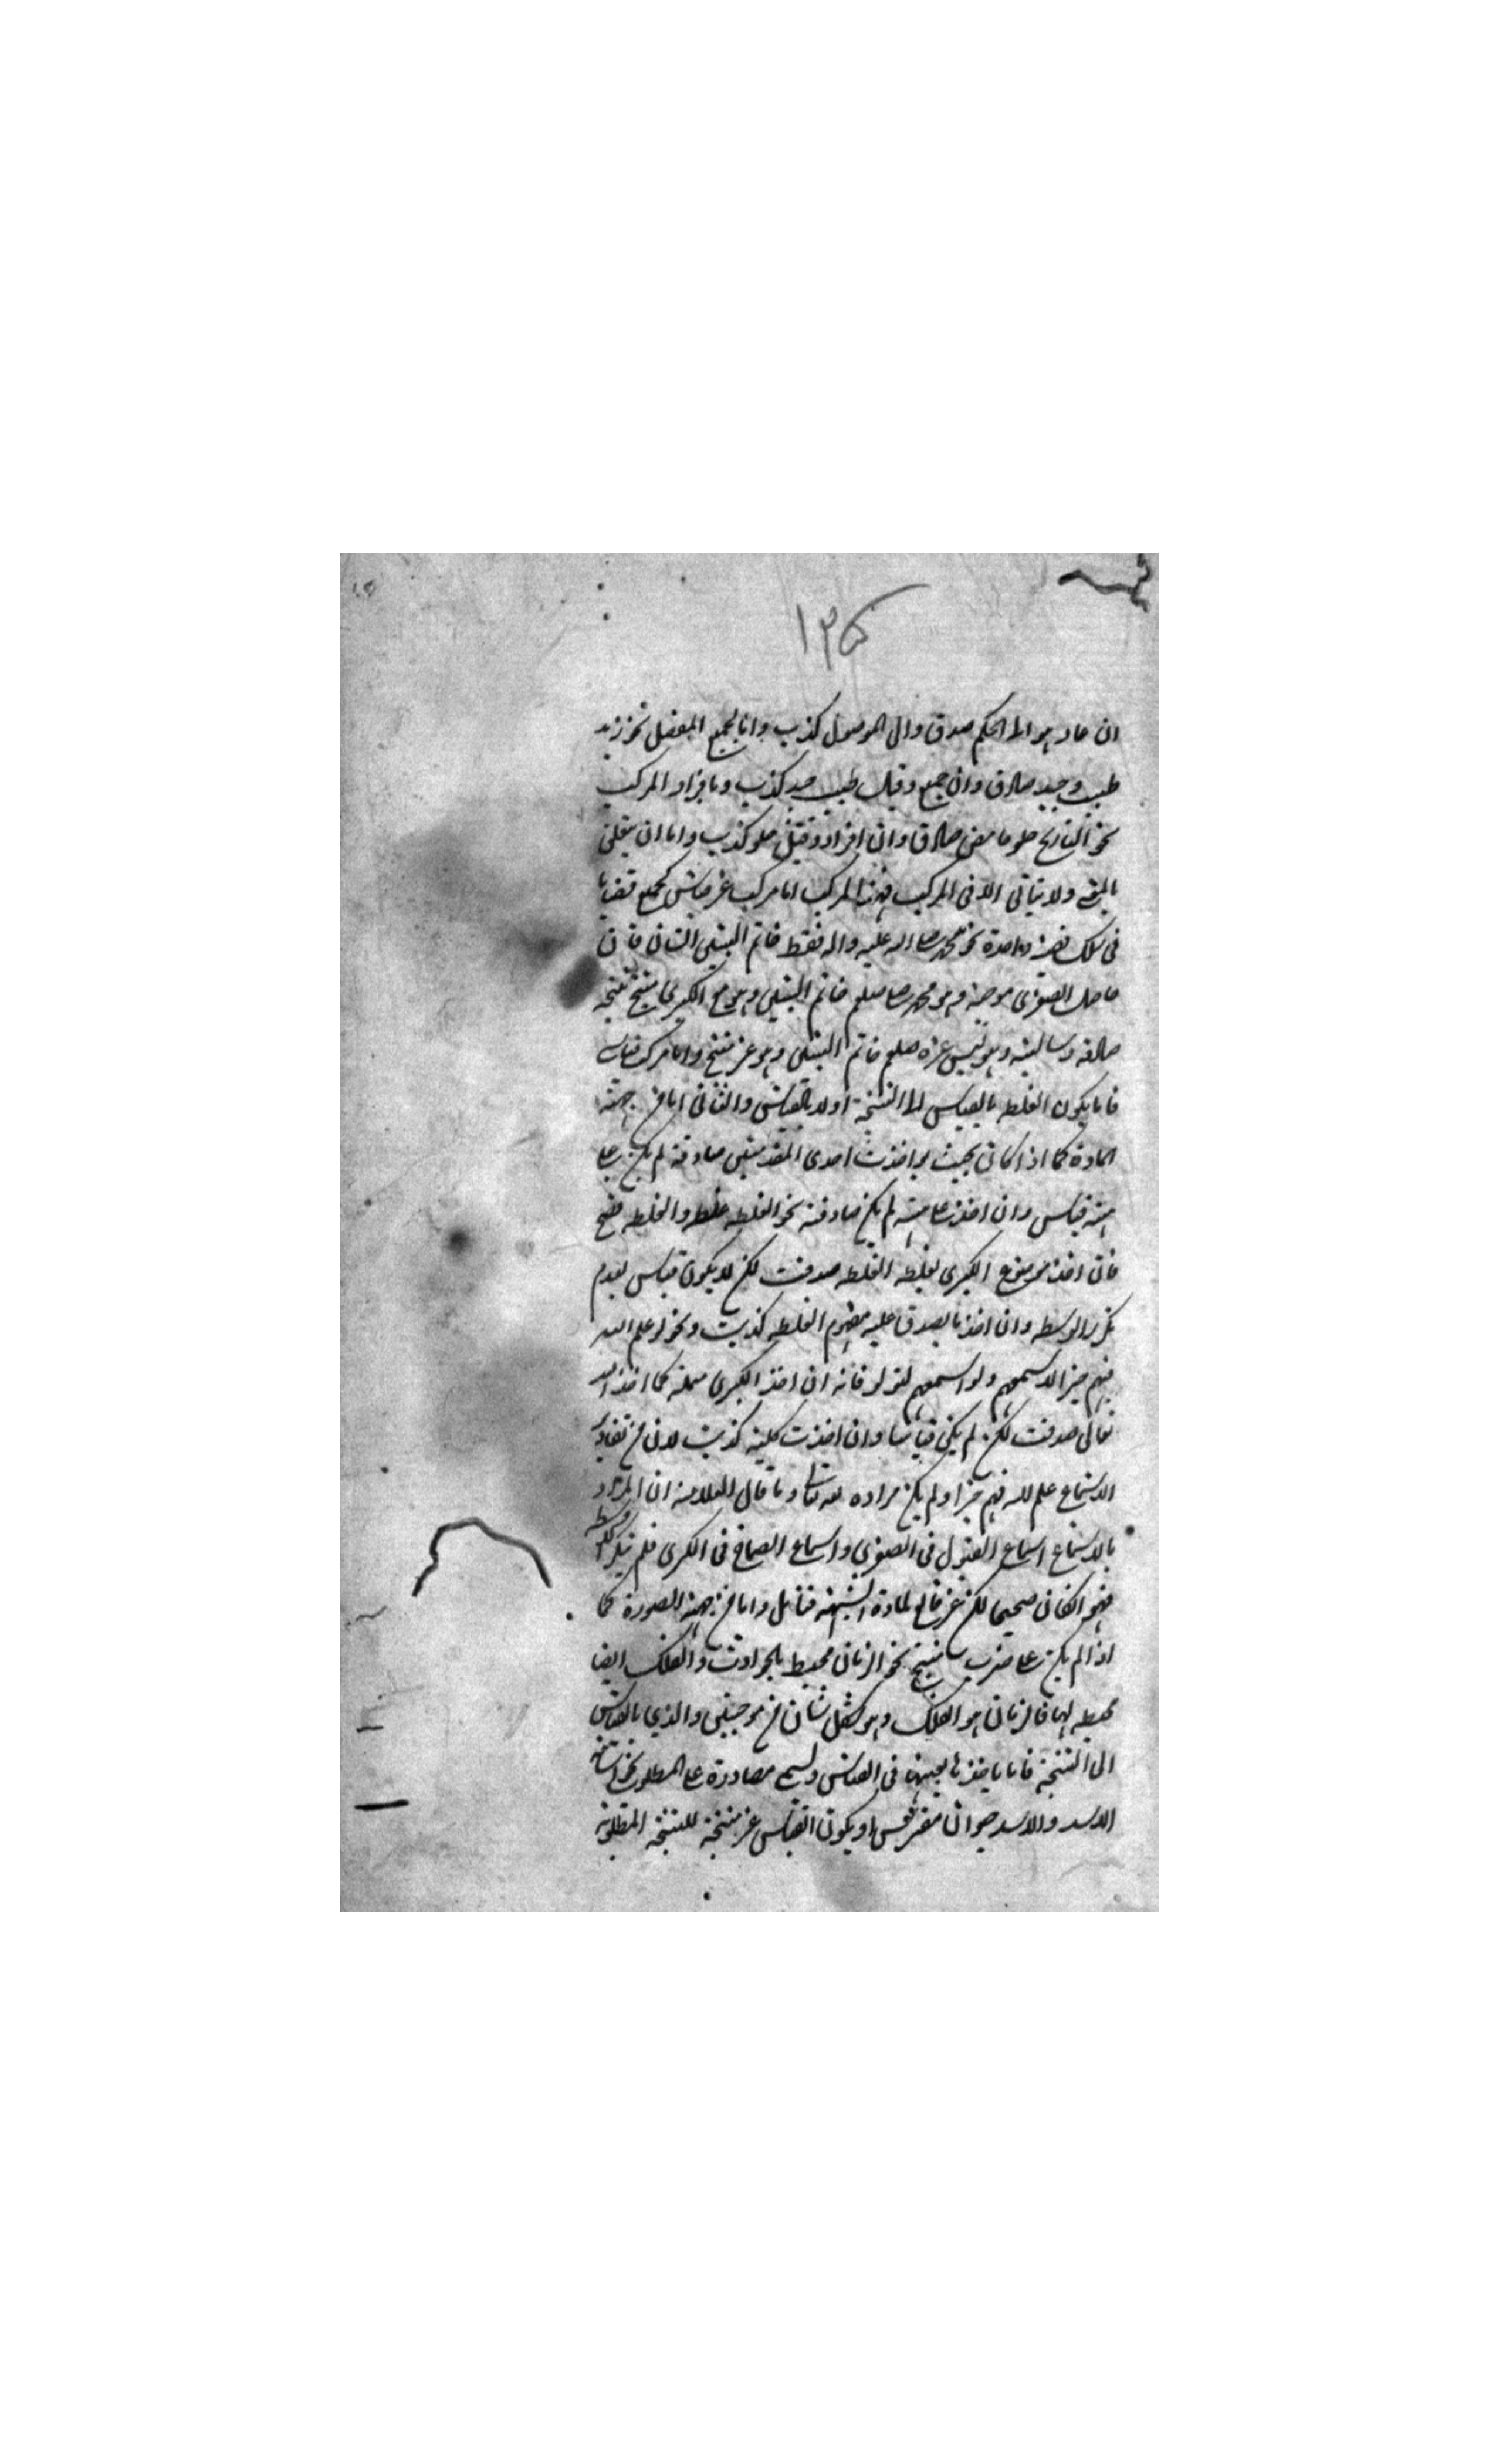 ١٣۵
ان عاد هو الى الحكم صدق والى الموصول كذب واما بجمع المفصل نحو زيد
طبيب وجيد صادق وان جمع وقيل طبيب جيد كذب وبافراد المركب
نحو النارنج حلو حامض صادق وان افرد وقيل حلو كذب واما ان يتعلق
ولا يتاتى الا فى المركب فهذا المركب اما مركب غير قياسى كجمع قضايا
فى سلك واحدة نحو محمد صلى الله عليه واله فقط خاتم النبيين الثانى فان
حاصل الصغرى موجبة وهو محمد صلعم خاتم النبيين وهو مع الكبرى منتج نتيجة
صادقة وسالبة وهو ليس غيره صلعم خاتم النبيين وهو غير منتج واما مركب قياسى
فاما يكون الغلط بالقياس الى النتيجة اولا بالقياس والثانى اما من جهة
المادة كما اذا كانت بحيث لو اخذت احدى المقدمتين صادقة لم يكن على
هيئة قياس وان اخذت على هيئة لم يكن صادقة نحو الغلطه غلطه والغلطه صحيح
فان اخذ موضوع الكبرى لفظه الغلطه صدقت لكن لا يكون قياس لعدم
تكرر الوسط وان اخذ ما يصدق عليه مفهوم الغلطه كذبت ونحو لو علم الله
فيهم خيرا لاسمعهم ولو اسمعهم لتولوا فانه ان اخذ الكبرى مهملة كما اخذ الله
تعالى صدقت لكن لم يكن قياسا وان اخذت كلية كذبت لان من تقادير
الاستماع علم الله فيهم خيرا ولم يكن مراده تعالى وما قال العلامة ان المراد
بالاستماع اسماع القبول فى الصغرى واسماع الصماخ فى الكبرى فلم يتكرر الوسط
فهو ان كان صحيحا لكن غير قالع لمادة الشبهة فتامل واما من جهة الصورة كما
اذا لم يكن على ضرب منتج نحو الزمان محيط بالحوادث والفلك ايضا
محيط بها فالزمان هو الفلك وهو شكل ثان من موجبتين والذي بالقياس
الى النتيجة فاما باخذها بعينها فى القياس ويسمى مصادرة على المطلوب نحو
الاسد والاسد حيوان مفترس او يكون القياس غير منتجة للنتيجة المطلوبة